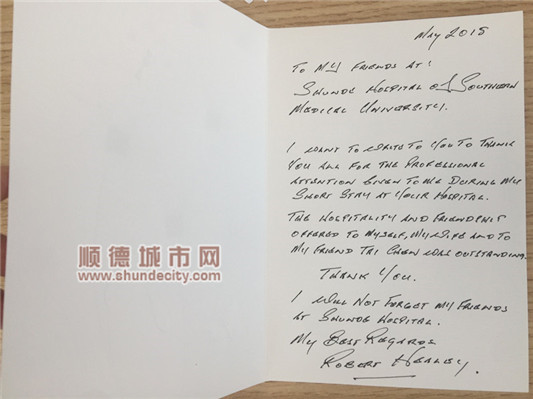 May 2015
To My Friends at:
Shunde Hospital of Southern
Medical University.
I want to write to you to thank
you all for the professional
attention given to me during my
short stay at your hospital.
The hospitality and friendship
offered to myself, my wife and to
my friend Tai Chen was outstanding.
Thank you.
I will not forget my friends
at Shunde Hospital.
My Best Regards
Robert Healey.
顺德城市网
www.shundecity.com